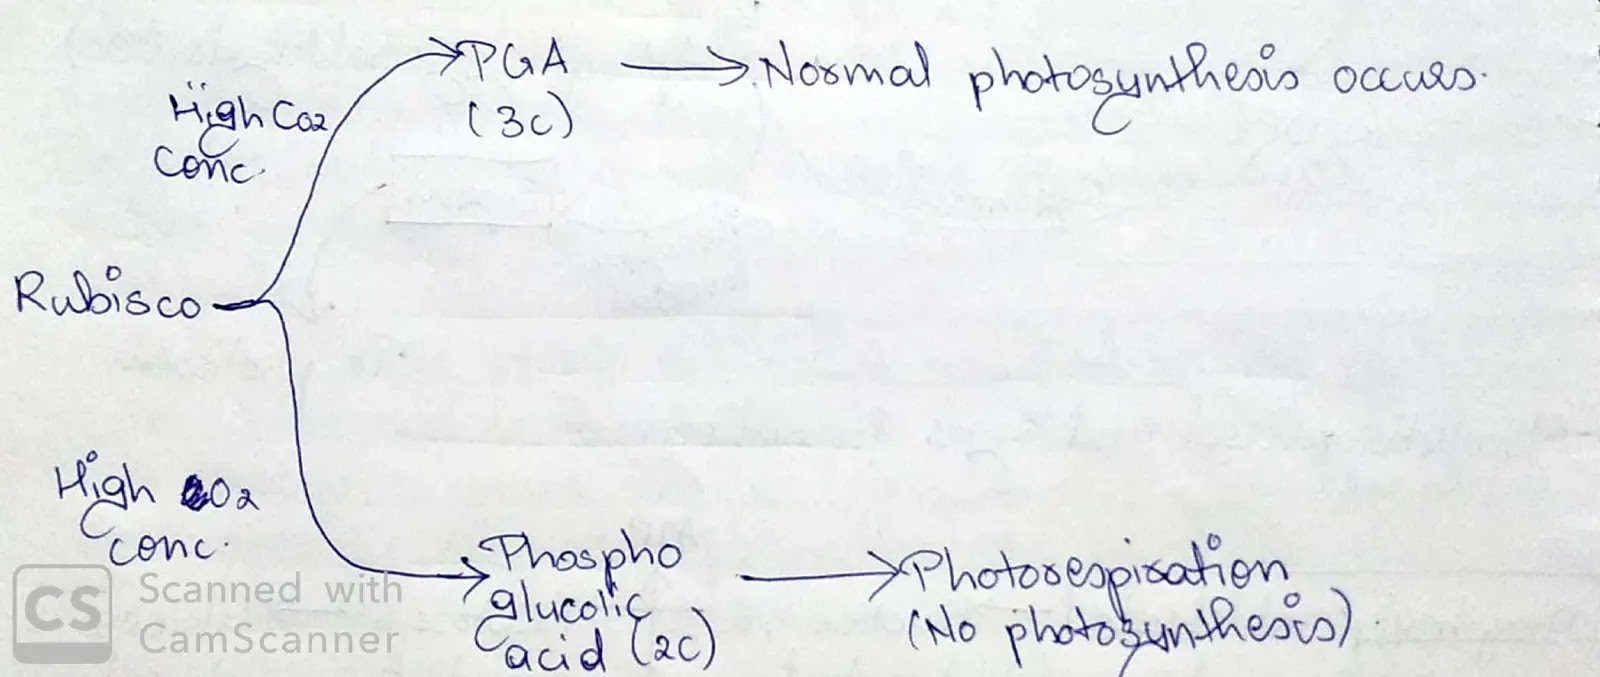 PGA → Normal photosynthesis occurs.
(3c)
High Co2
Conc.
Rubisco
High O2
conc.
Phospho
glucolic
acid (2c)
→ Photorespiration
(No photosynthesis)
CS
Scanned with
CamScanner